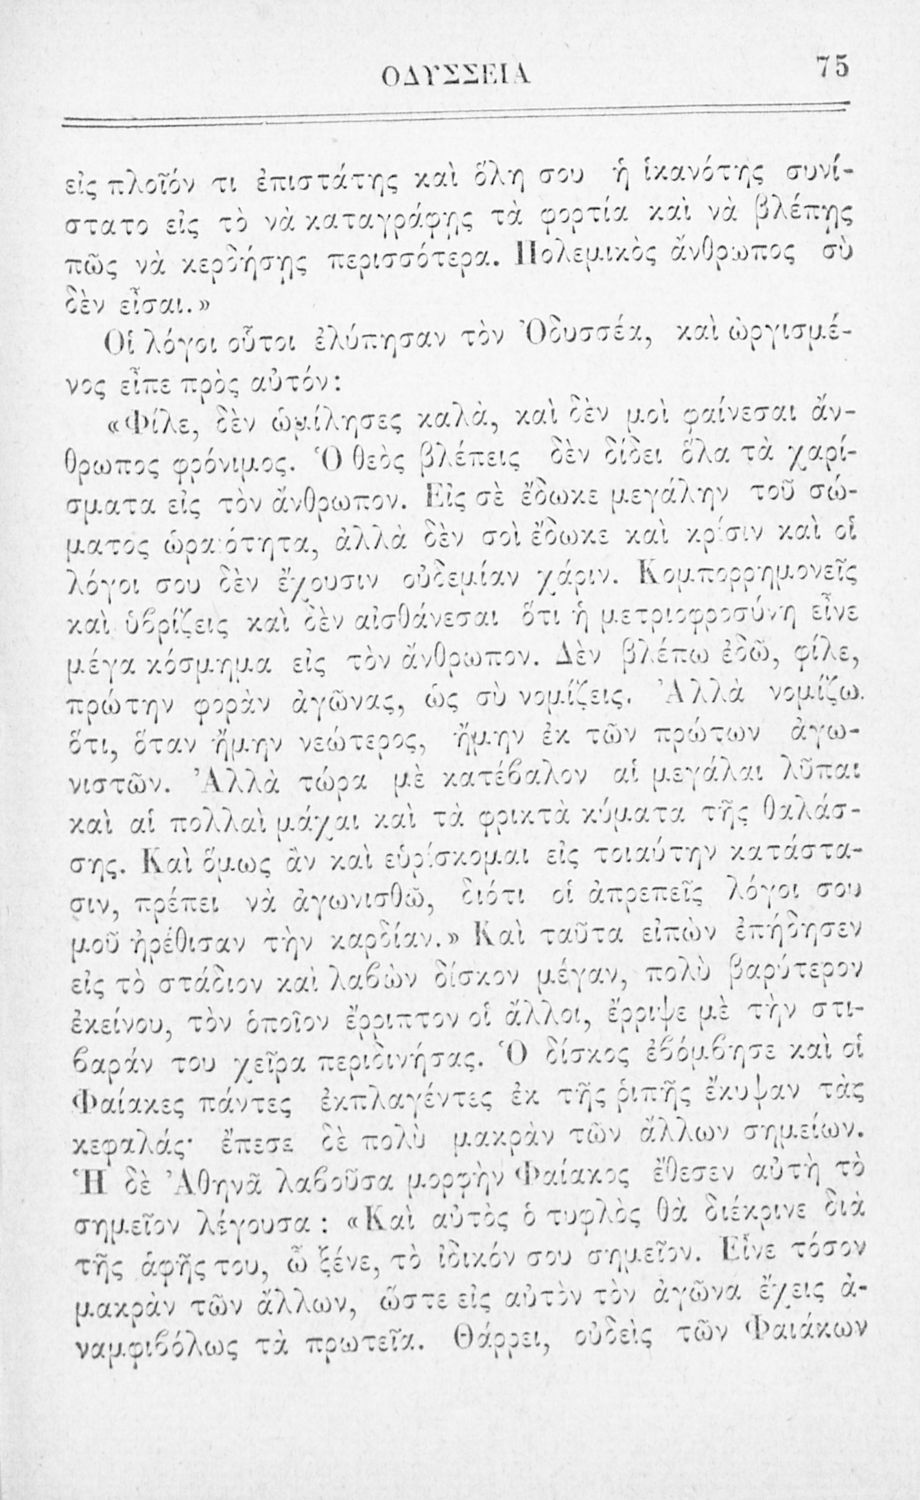 ΟΔΥΣΣΕΙΑ 75
εἰς πλοῖόν τι ἐπιστάτης καὶ ὅλη σου ἡ ἱκανότης συνί-
στατο εἰς τὸ νὰ καταγράφῃς τὰ φορτία καὶ νὰ βλέπῃς
πῶς νὰ κερδήσῃς περισσότερα. Πολεμικὸς ἄνθρωπος σὺ
δὲν εἶσαι.»
Οἱ λόγοι οὗτοι ἐλύπησαν τὸν Ὀδυσσέα, καὶ ὠργισμέ-
νος εἶπε πρὸς αὐτόν:
«Φίλε, δὲν ὡμίλησες καλὰ, καὶ δὲν μοὶ φαίνεσαι ἄν-
θρωπος φρόνιμος. Ὁ θεὸς βλέπεις δὲν δίδει ὅλα τὰ χαρί-
σματα εἰς τὸν ἄνθρωπον. Εἰς σὲ ἔδωκε μεγάλην τοῦ σώ-
ματος ὡραιότητα, ἀλλὰ δὲν σοὶ ἔδωκε καὶ κρίσιν καὶ οἱ
λόγοι σου δὲν ἔχουσιν οὐδεμίαν χάριν. Κομπορρημονεῖς
καὶ ὑβρίζεις καὶ δὲν αἰσθάνεσαι ὅτι ἡ μετριοφροσύνη εἶνε
μέγα κόσμημα εἰς τὸν ἄνθρωπον. Δὲν βλέπω ἐδῶ, φίλε,
πρώτην φορὰν ἀγῶνας, ὡς σὺ νομίζεις. Ἀλλὰ νομίζω.
ὅτι, ὅταν ἤμην νεώτερος, ἤμην ἐκ τῶν πρώτων ἀγω-
νιστῶν. Ἀλλὰ τώρα μὲ κατέβαλον αἱ μεγάλαι λῦπαι
καὶ αἱ πολλαὶ μάχαι καὶ τὰ φρικτὰ κύματα τῆς θαλάσ-
σης. Καὶ ὅμως ἂν καὶ εὑρίσκομαι εἰς τοιαύτην κατάστα-
σιν, πρέπει νὰ ἀγωνισθῶ, διότι οἱ ἀπρεπεῖς λόγοι σου
μοῦ ἠρέθισαν τὴν καρδίαν.» Καὶ ταῦτα εἰπὼν ἐπήδησεν
εἰς τὸ στάδιον καὶ λαβὼν δίσκον μέγαν, πολὺ βαρύτερον
ἐκείνου, τὸν ὁποῖον ἔρριπτον οἱ ἄλλοι, ἔρριψε μὲ τὴν στι-
βαράν του χεῖρα περιδινήσας. Ὁ δίσκος ἐβόμβησε καὶ οἱ
Φαίακες πάντες ἐκπλαγέντες ἐκ τῆς ῥιπῆς ἔκυψαν τὰς
κεφαλάς· ἔπεσε δὲ πολὺ μακρὰν τῶν ἄλλων σημείων.
Ἡ δὲ Ἀθηνᾶ λαβοῦσα μορφὴν Φαίακος ἔθεσεν αὐτὴ τὸ
σημεῖον λέγουσα: «Καὶ αὐτὸς ὁ τυφλὸς θὰ διέκρινε διὰ
τῆς ἁφῆς του, ὦ ξένε, τὸ ἰδικόν σου σημεῖον. Εἶνε τόσον
μακρὰν τῶν ἄλλων, ὥστε εἰς αὐτὸν τὸν ἀγῶνα ἔχεις ἀ-
ναμφιβόλως τὰ πρωτεῖα. Θάρρει, οὐδεὶς τῶν Φαιάκων